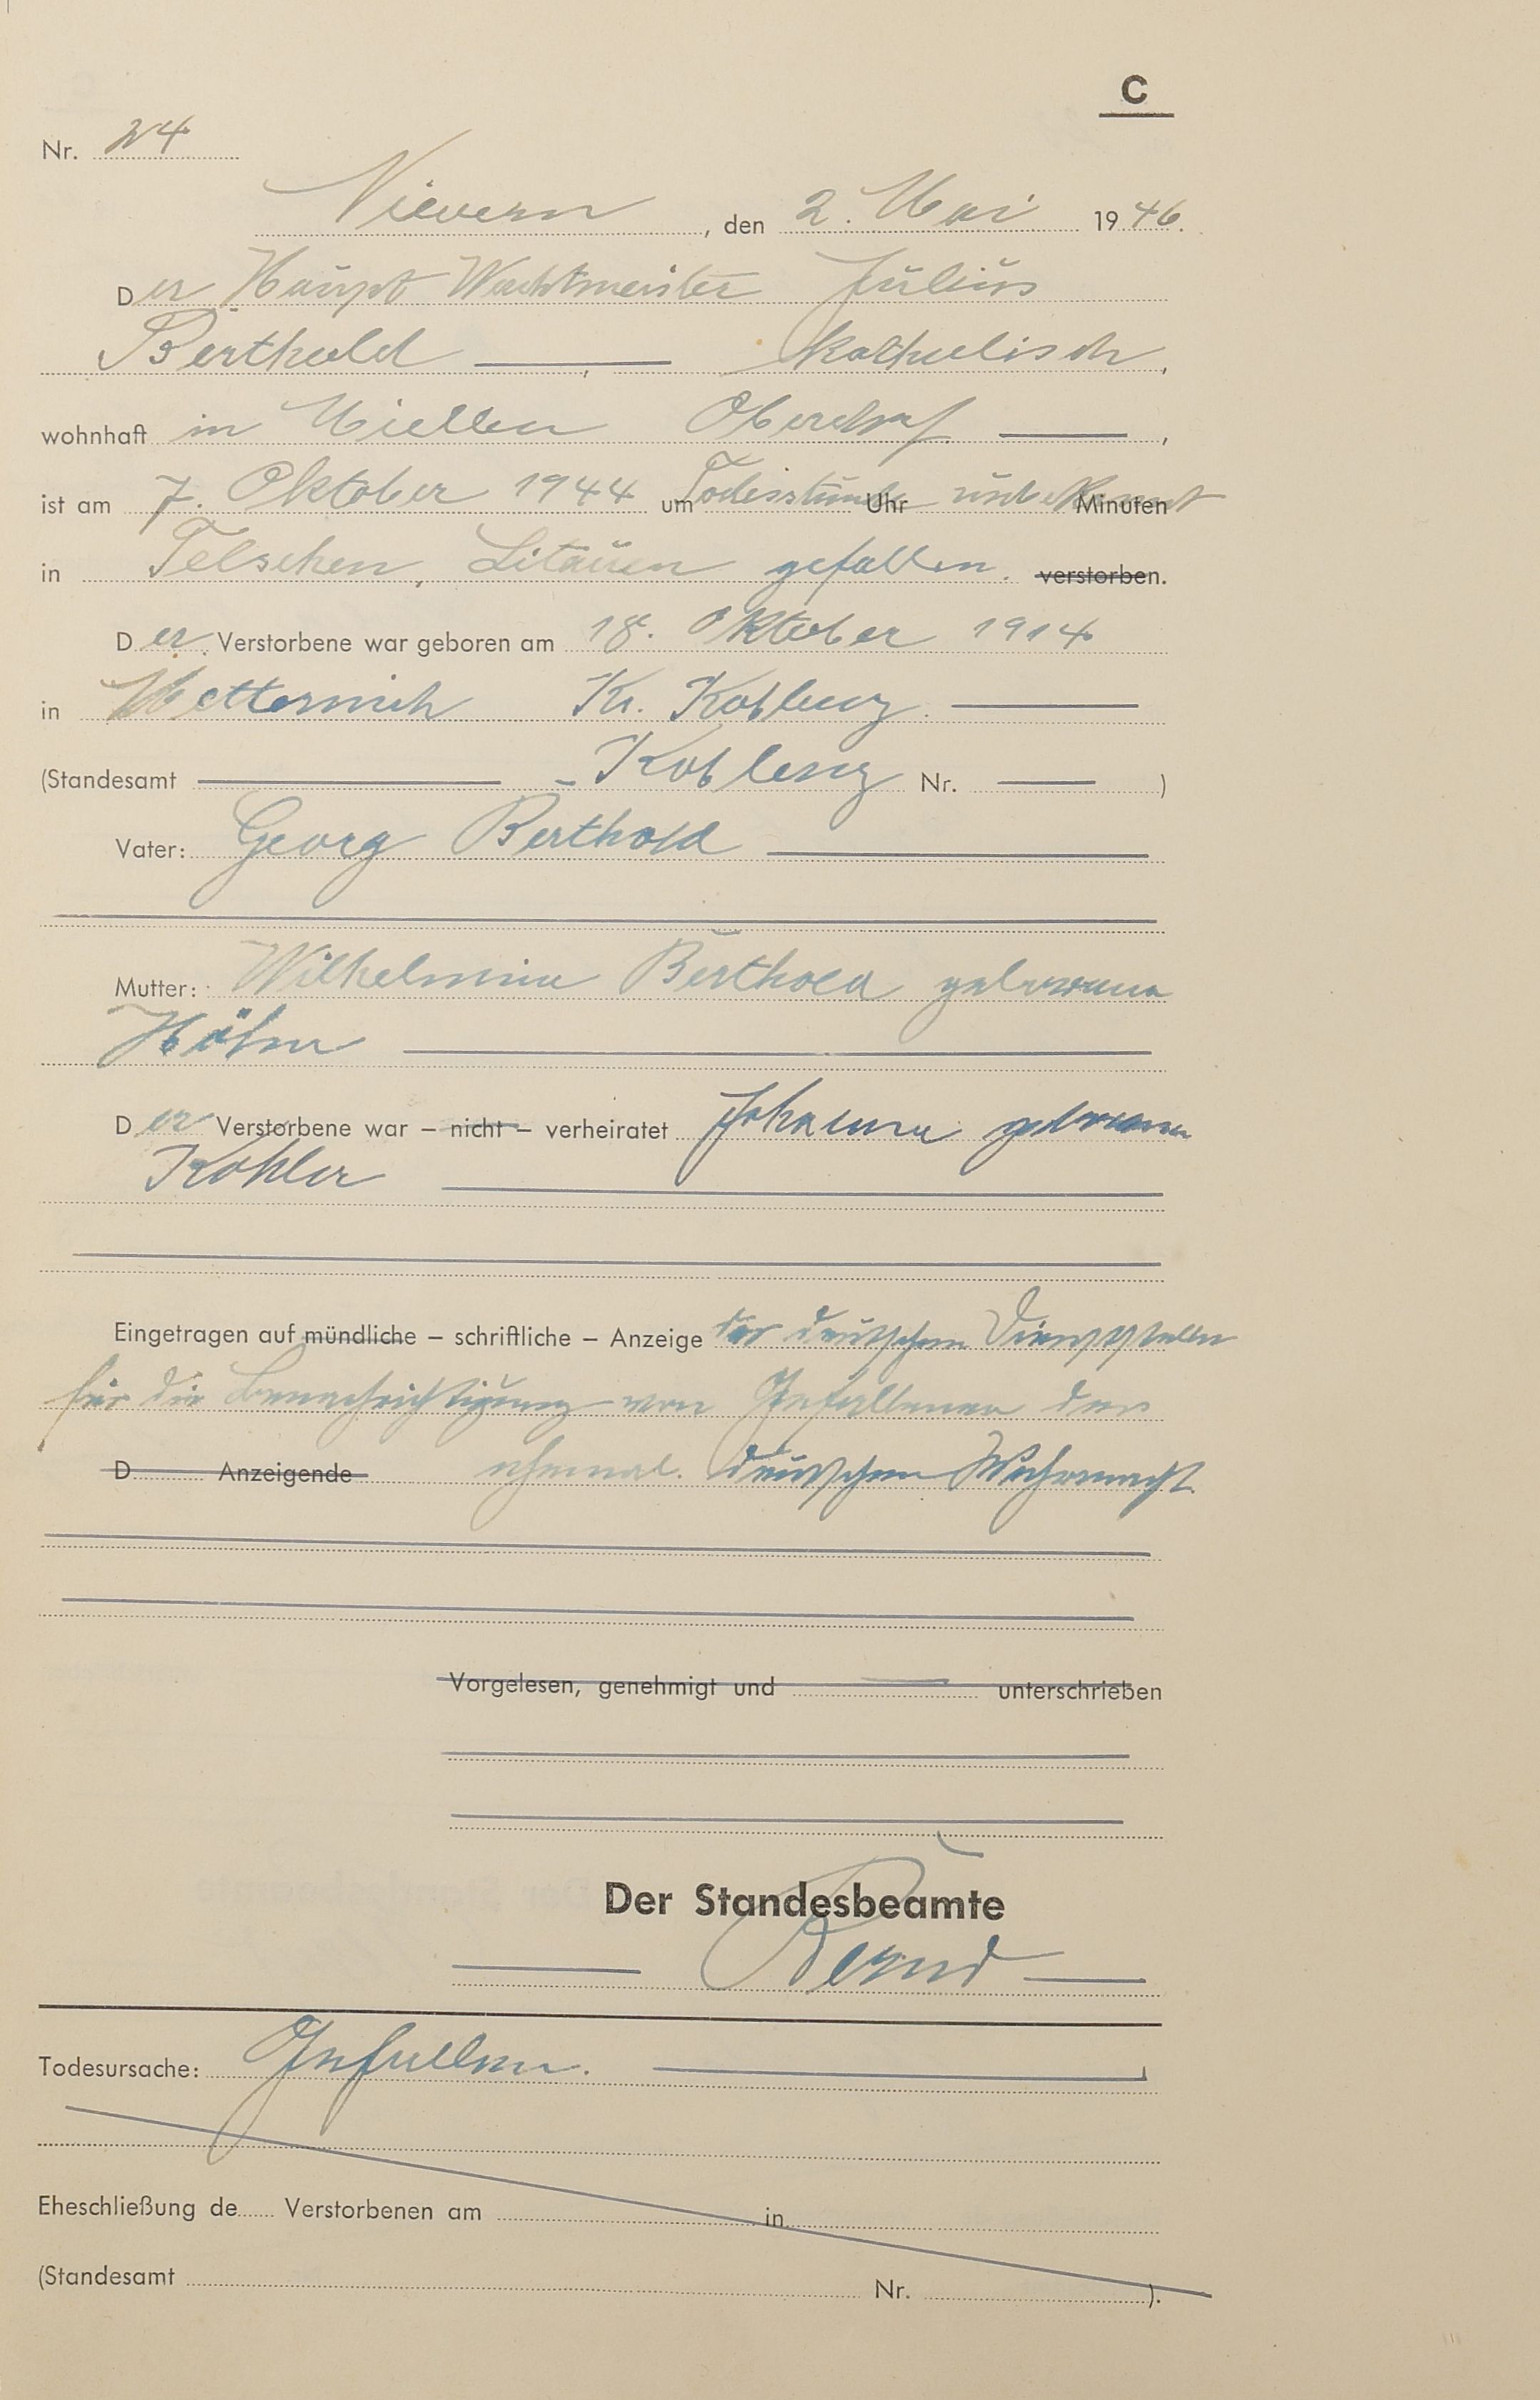 C
Nr. 24
Nievern, den 2. Mai 1946.
Der Haupt Wachtmeister Julius
Berthold — katholisch,
wohnhaft in Miellen Oberdorf —,
ist am 7. Oktober 1944 um Todesstunde Uhr unbekannt Minuten
in Telschen, Litauen gefallen. verstorben.
Der Verstorbene war geboren am 18. Oktober 1914
in Metternich Kr. Koblenz. —
(Standesamt — Koblenz Nr. — )
Vater: Georg Berthold —
Mutter: Wilhelmine Berthold geborene
Höhn —
Der Verstorbene war – nicht – verheiratet Johanna geborene
Köhler —
Eingetragen auf mündliche – schriftliche – Anzeige der deutschen Dienststelle
für die Benachrichtigung von Gefallenen der
D Anzeigende ehemal. deutschen Wehrmacht.
Vorgelesen, genehmigt und — unterschrieben
Der Standesbeamte
— —
Todesursache: Gefallen. —
Eheschließung de Verstorbenen am in
(Standesamt Nr. ).